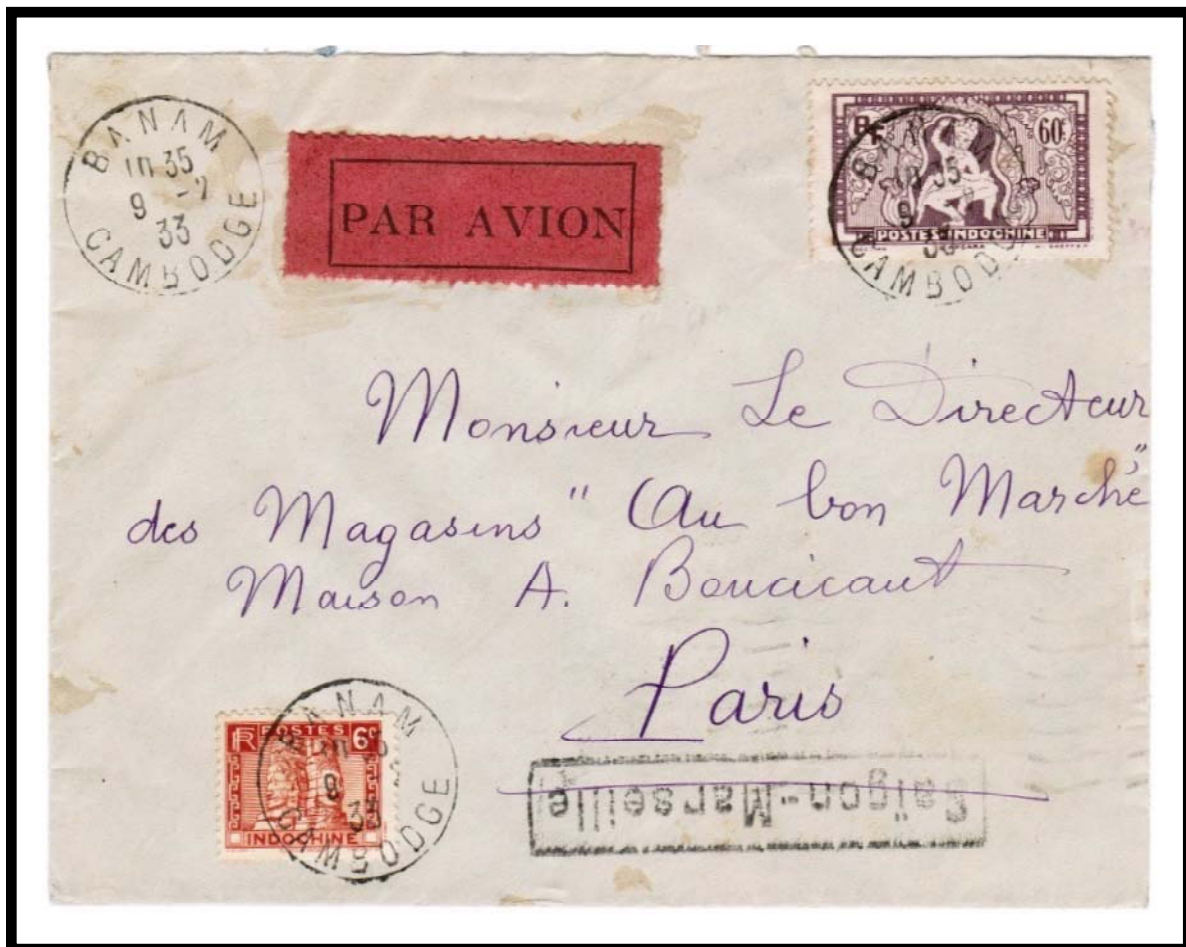 BANAM
10 35
9 -7
33
CAMBODGE
PAR AVION
RF
60c
POSTES INDOCHINE
BANAM
10 35
9
33
CAMBODGE
Monsieur Le Directeur
des Magasins "Au bon Marché"
Maison A. Boucicaut
Paris
RF POSTES 6c
INDOCHINE
BANAM
9
33
CAMBODGE
Saïgon-Marseille